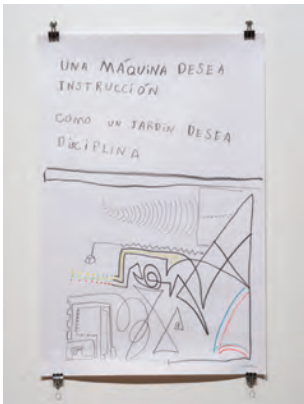 UNA MÁQUINA DESEA
INSTRUCCIÓN
COMO UN JARDÍN DESEA
DICIPLINA